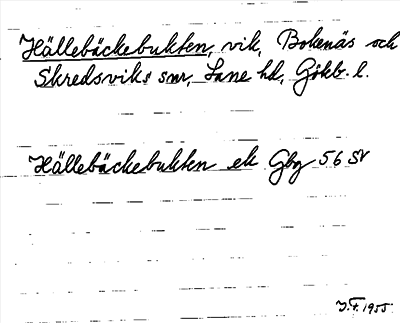 Hällebäckebukten, vik, Bokenäs och
Skredsviks snr, Lane hd, Gbkb. l.
Hällebäckebukten ek Gbg 56 SV
J.F. 1955